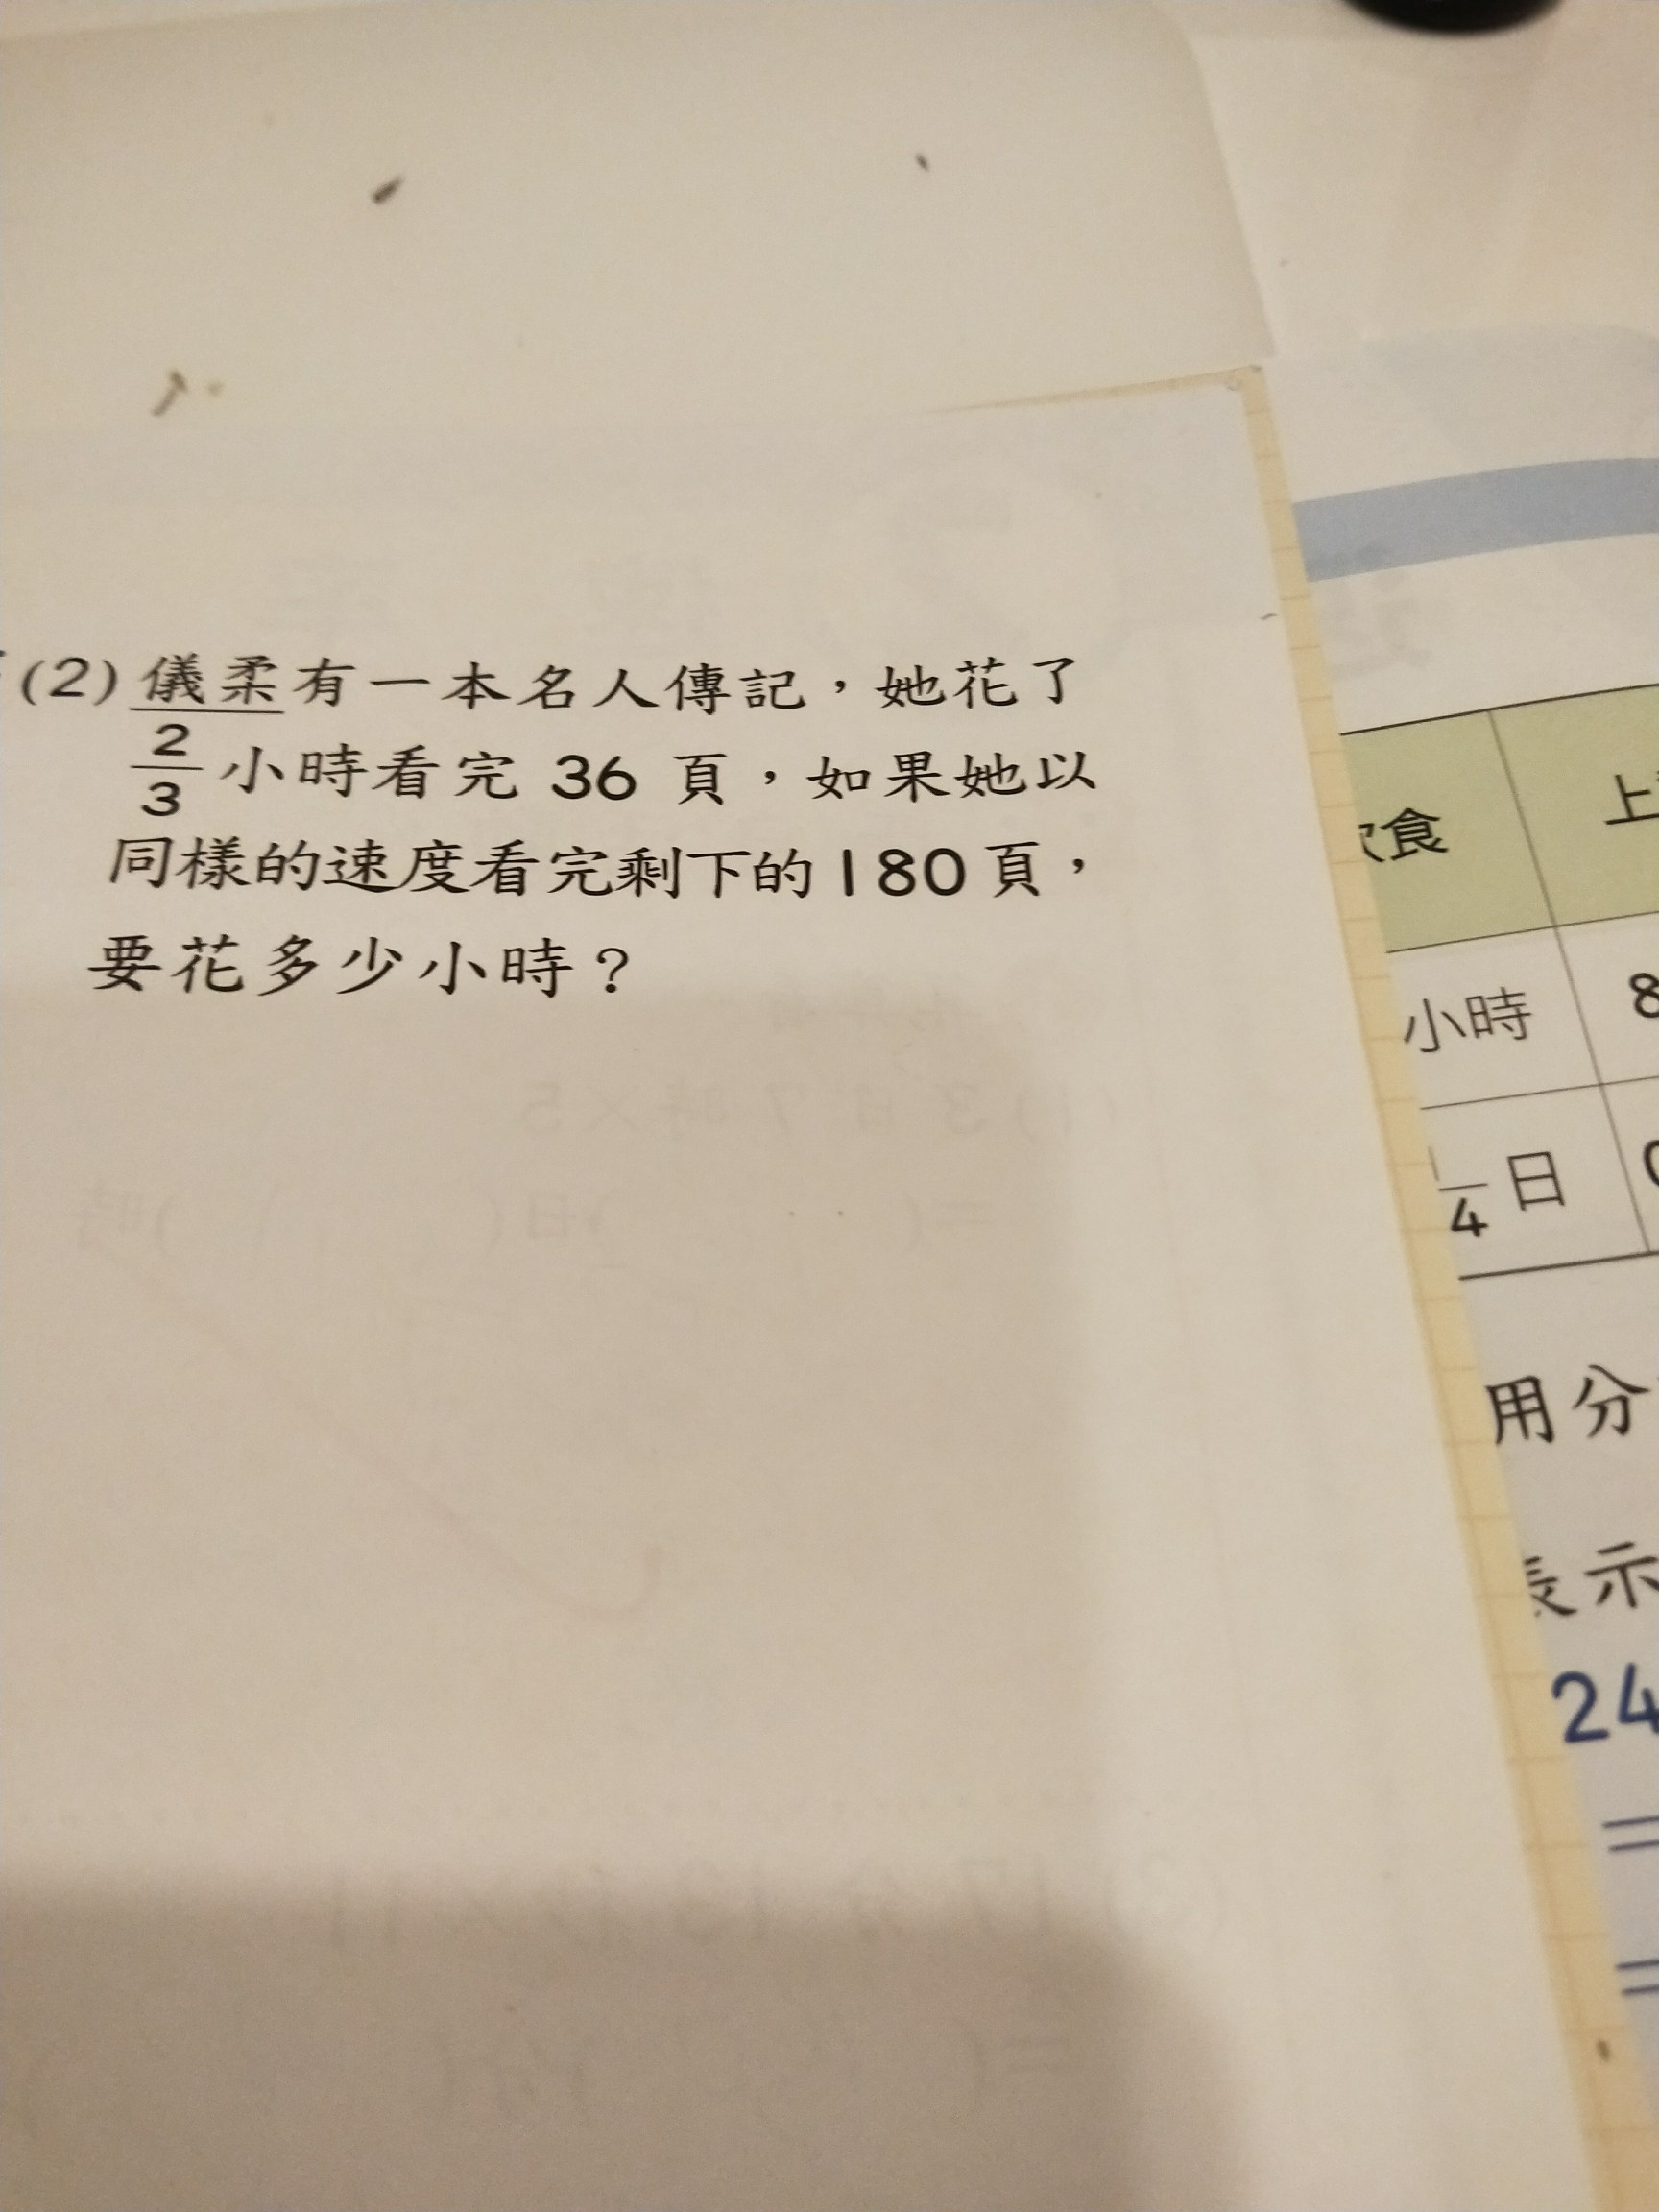 (2) 儀柔有一本名人傳記，她花了
2/3 小時看完 36 頁，如果她以
同樣的速度看完剩下的180頁，
要花多少小時？
食 上
小時 8
4 日
用分
表示
24
=
=